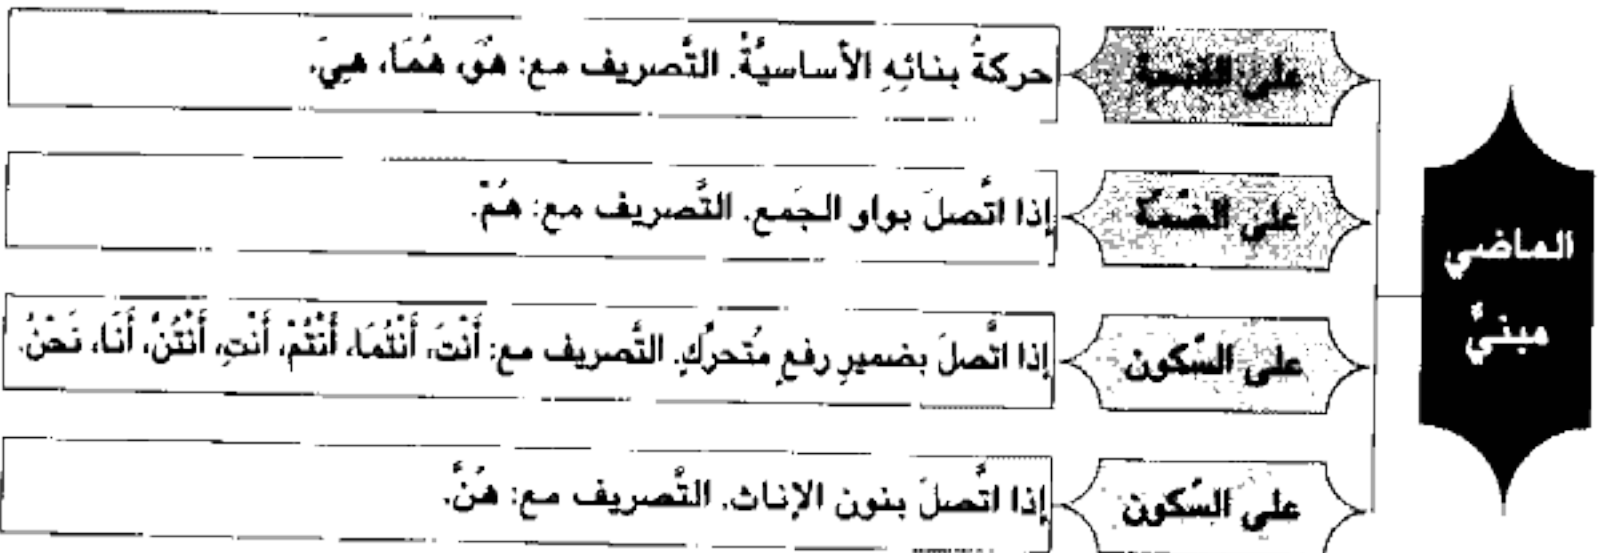 الماضي
مبنيٌّ
على الفتحة
حركةُ بنائِهِ الأساسيَّةُ. التَّصريف مع: هُوَ، هُمَا، هِيَ.
على الضّمّة
إذا اتَّصلَ بواو الجَمع. التَّصريف مع: هُمْ.
على السّكون
إذا اتَّصلَ بضميرِ رفعٍ مُتحرِّكٍ. التَّصريف مع: أَنْتَ، أَنْتُمَا، أَنْتُمْ، أَنْتِ، أَنْتُنَّ، أَنَا، نَحْنُ.
على السّكون
إذا اتَّصلَ بنون الإناث. التَّصريف مع: هُنَّ.